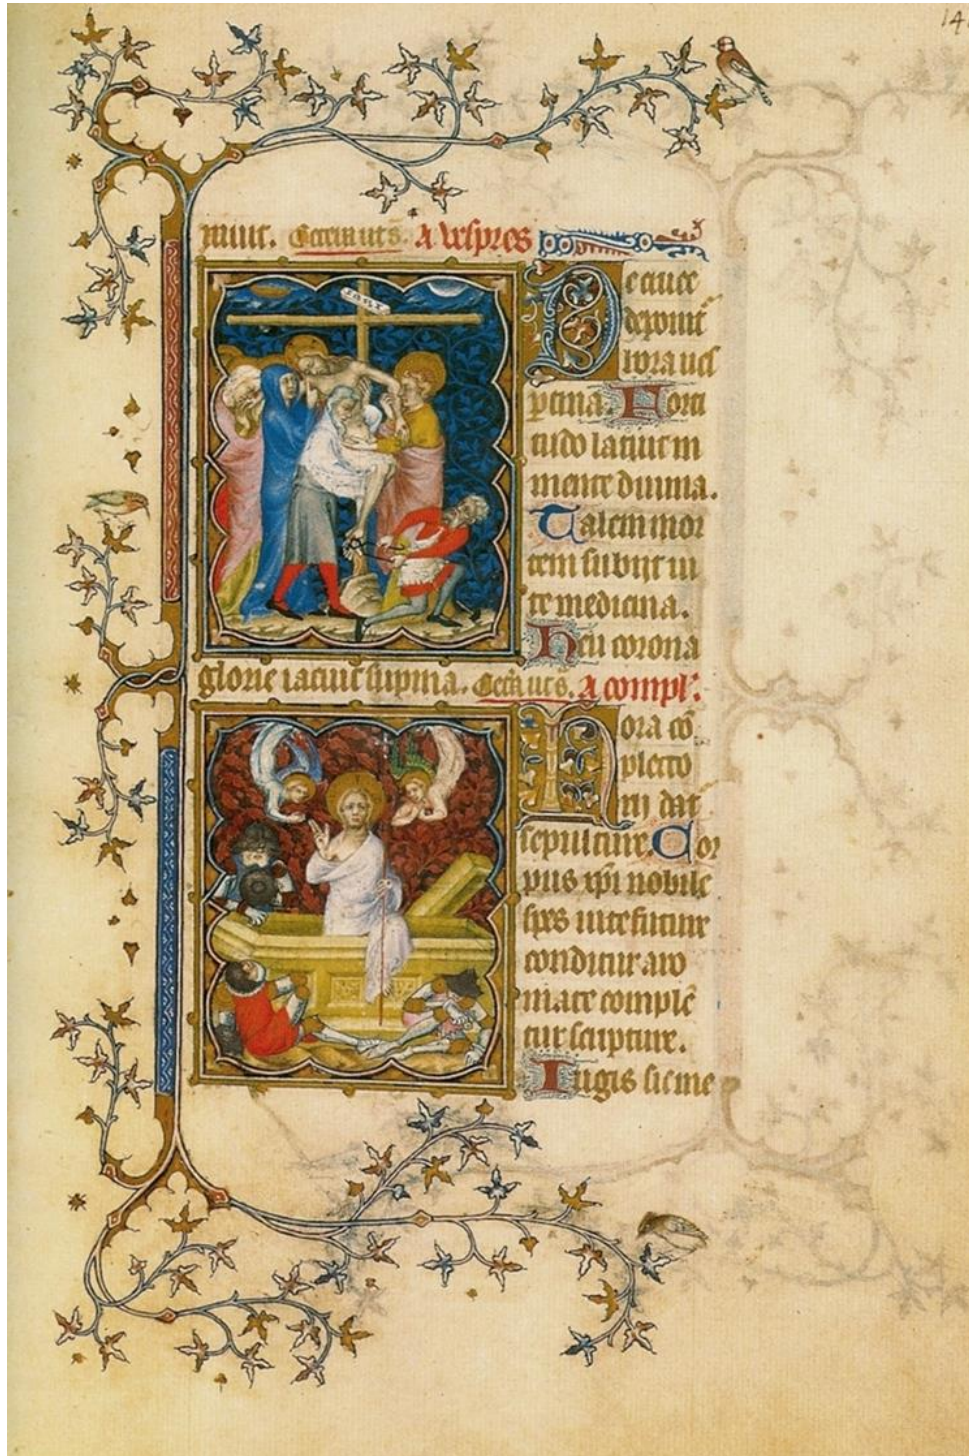 14
Cetera ut s. A vespres
De cruce
deponit̄
hora ves
pertina. Forti
tudo latuit in
mente divina.
Talem mor
tem subiit vi
te medicina.
Heu corona
glorie iacuit supina. Cetera ut s. A compl'.
Hora cō
pleto
rij dat̄
sepulture. Cor
pus xp̄i nobile
spes vite future
conditur aro
mate complē
tur scripture.
Iugis sit me